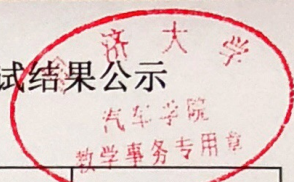 试结果公示
济大学
汽车学院
教学事务专用章